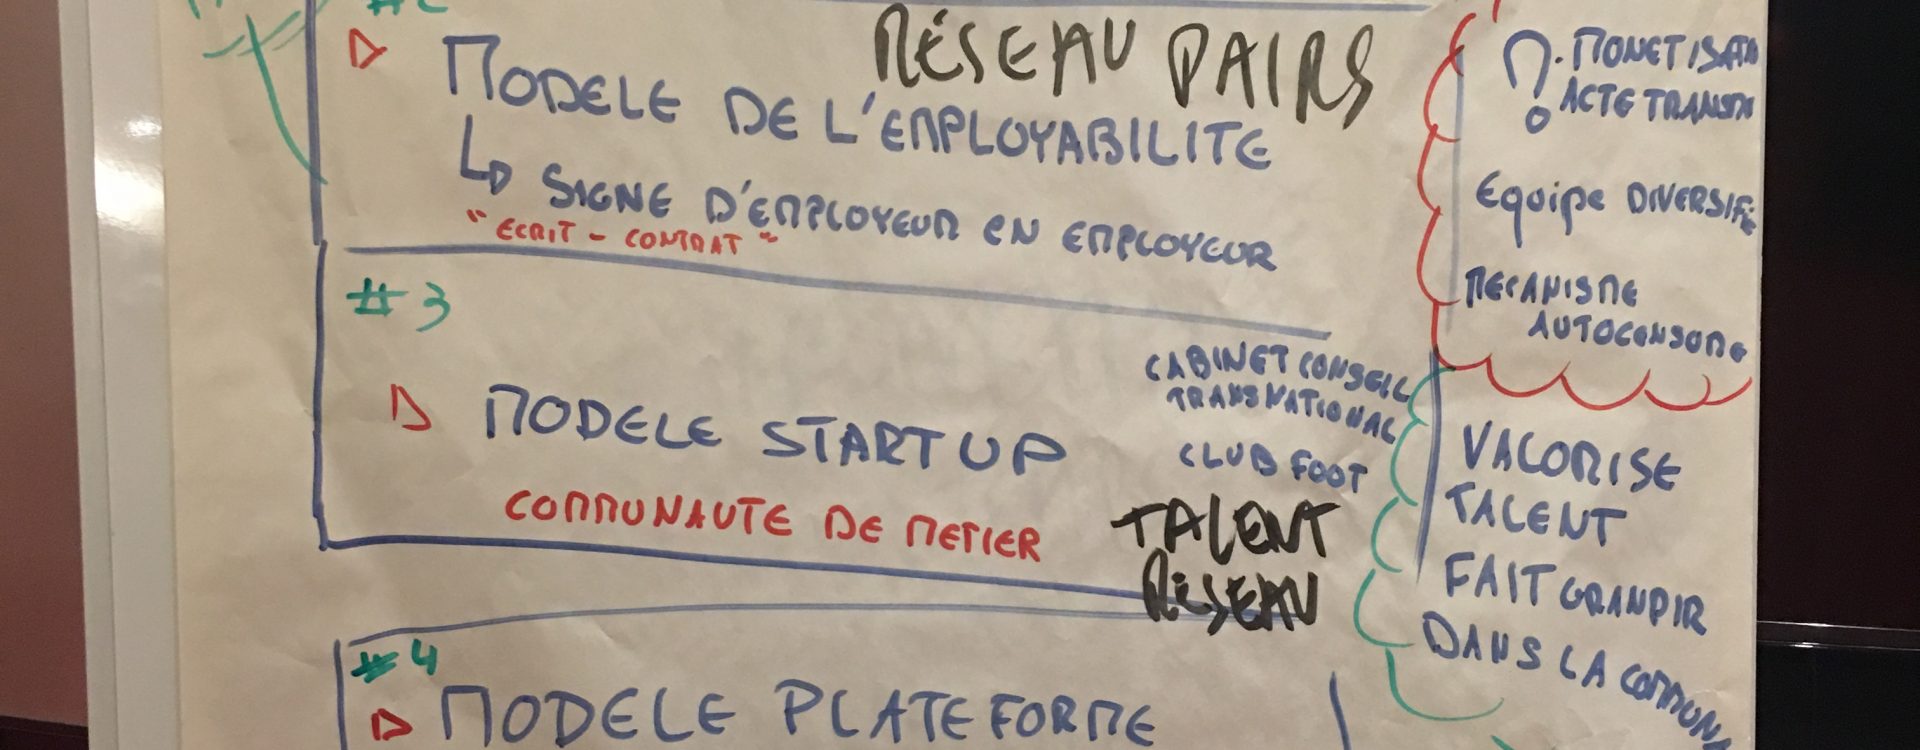 #2
RÉSEAU PAIRS
MODELE DE L'EMPLOYABILITE
SIGNE D'EMPLOYEUR EN EMPLOYEUR
"ECRIT - CONTRAT"
? . MONETISATI
ACTE TRANSM
Equipe DIVERSIFIÉ
MECANISME
#3
MODELE STARTUP
COMMUNAUTE DE METIER
CABINET CONSEIL
TRANSNATIONAL
CLUB FOOT
TALENT
RÉSEAU
VALORISE
TALENT
FAIT GRANDIR
DANS LA COMMUN
#4
MODELE PLATEFORME